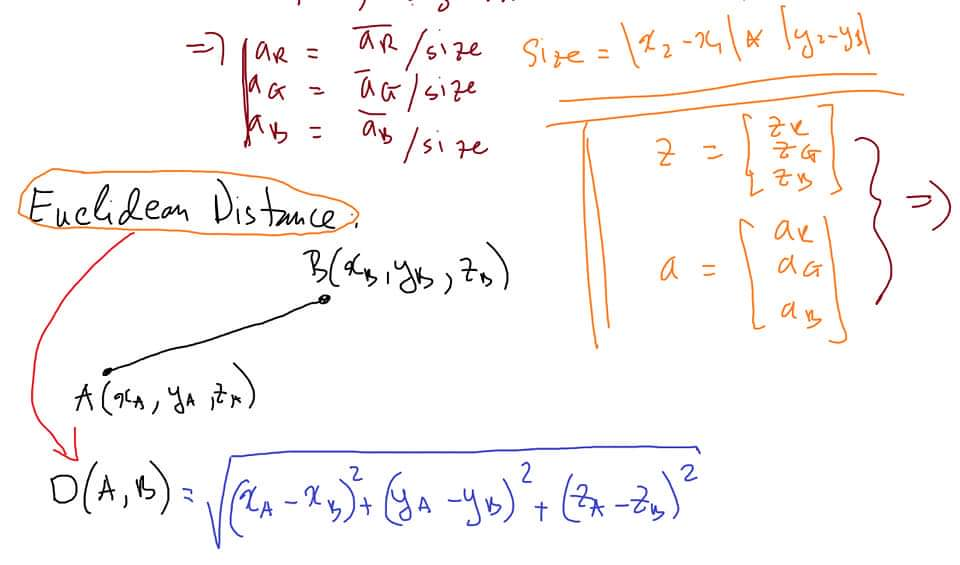 => | aR = āR / size
aG = āG / size
aB = āB / size
Size = |x2 - x1| * |y2 - y1|
z = [zR zG zB]
a = [aR aG aB]
} =>
Euclidean Distance:
B(xB, yB, zB)
A(xA, yA, zA)
D(A, B) = √(xA - xB)² + (yA - yB)² + (zA - zB)²